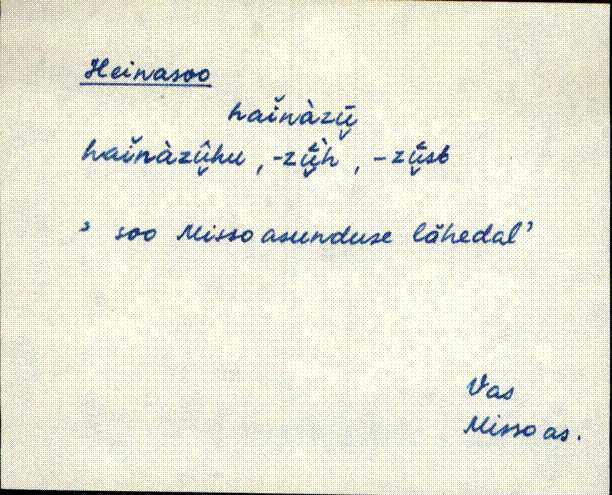 Heinasoo
haĭnàzū̬
haĭnàzû̬hu, -zū̬̀h, -zū̬st
' soo Misso asunduse lähedal'
Vas
Misso as.